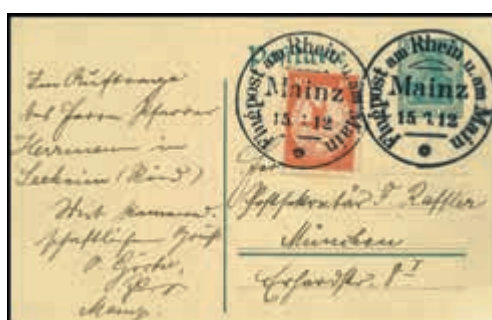 Im Auftrage
des Herrn Pfarrer
Herrmann in
Seeheim
Mit kamerad-
schaftlichem Gruß
Mainz.
Flugpost am Rhein u. am Main
Mainz
15 12
Flugpost am Rhein u. am Main
Mainz
15 12
Postsekretär
München
Erhardtstr. 8 I